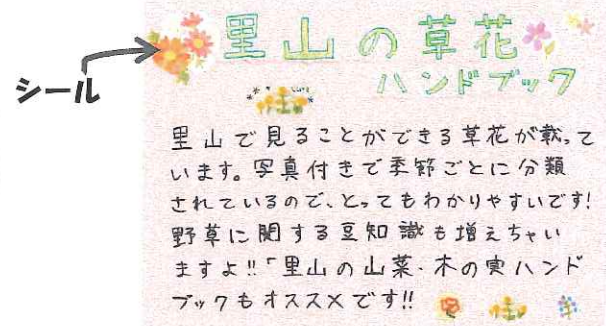 里山の草花
ハンドブック
シール
里山で見ることができる草花が載って
います。写真付きで季節ごとに分類
されているので、とってもわかりやすいです!
野草に関する豆知識も増えちゃい
ますよ!!「里山の山菜・木の実ハンド
ブックもオススメです!!